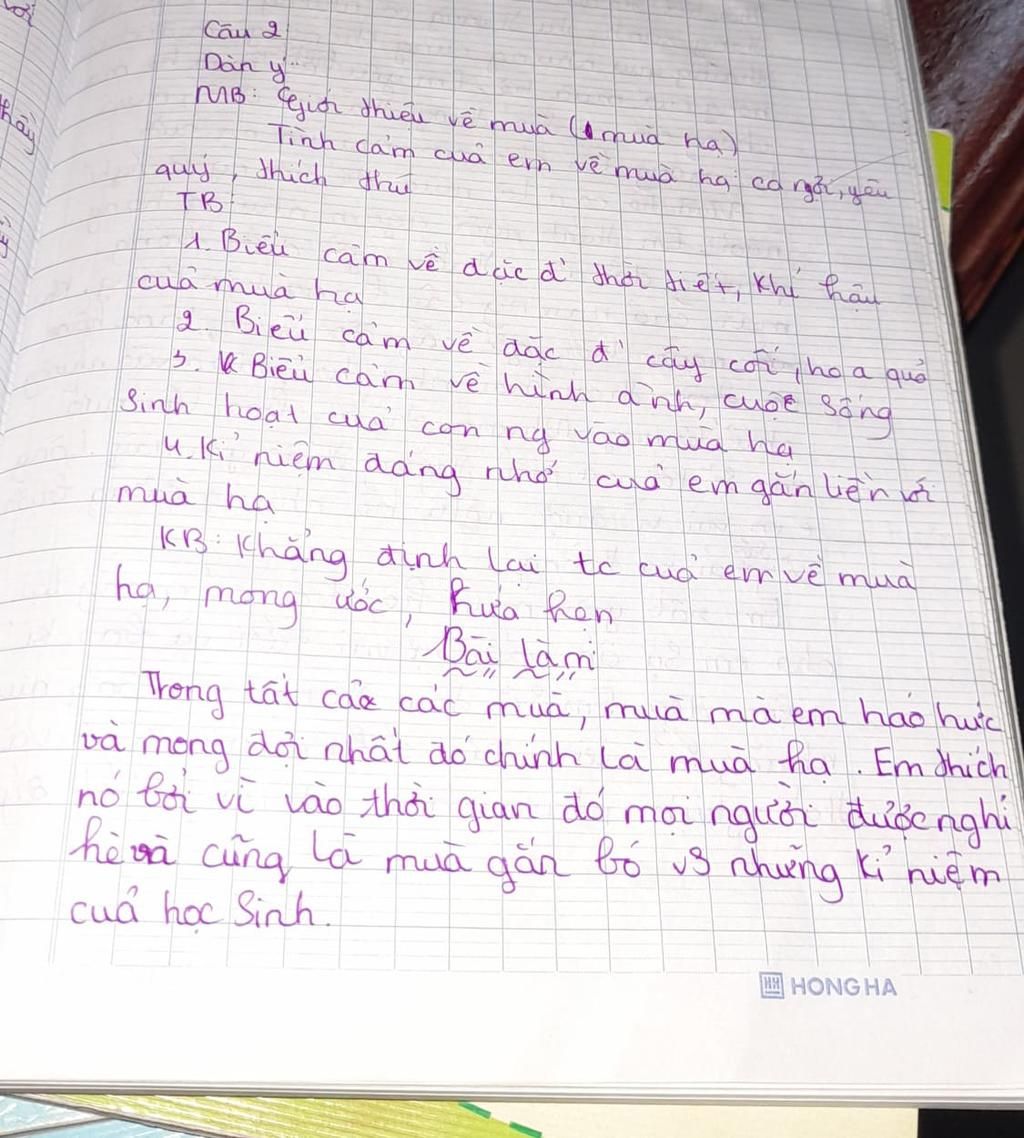 Câu 2
Dàn ý
MB: Giới thiệu về mùa (mùa hạ)
Tình cảm của em về mùa hạ: ca ngợi, yêu
quý, thích thú
TB:
1. Biểu cảm về đặc đ' thời tiết, khí hậu
của mùa hạ
2. Biểu cảm về đặc đ' cây cối, hoa quả
3. Biểu cảm về hình ảnh, cuộc sống
sinh hoạt của con ng vào mùa hạ
4. Kỉ niệm đáng nhớ của em gắn liền với
mùa hạ
KB: Khẳng định lại tc của em về mùa
hạ, mong ước, hứa hẹn
Bài làm
Trong tất cả các mùa, mùa mà em háo hức
và mong đợi nhất đó chính là mùa hạ. Em thích
nó bởi vì vào thời gian đó mọi người được nghỉ
hè và cũng là mùa gắn bó vs những kỉ niệm
của học sinh.
HONG HA